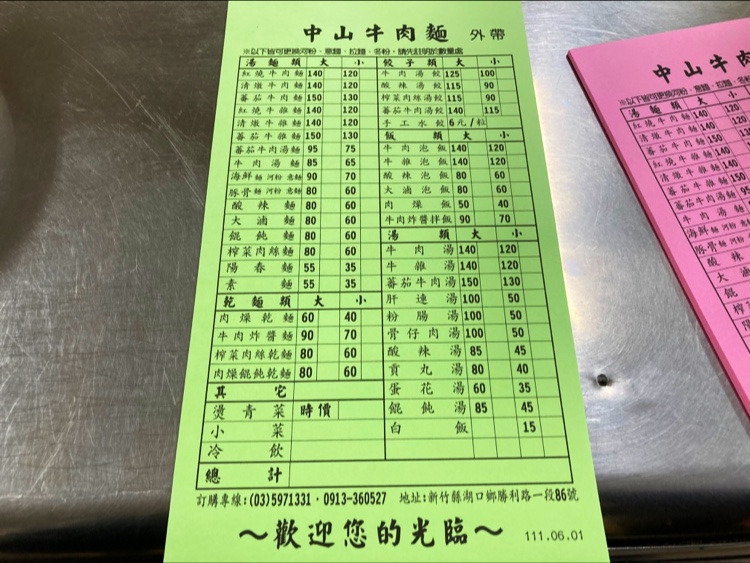 中山牛肉麵 外帶
※以下皆可更換河粉、意麵、拉麵、冬粉，請先註明於數量處
湯麵類 大 小
紅燒牛肉麵 140 120
清燉牛肉麵 140 120
蕃茄牛肉麵 150 130
紅燒牛雜麵 140 120
清燉牛雜麵 140 120
蕃茄牛雜麵 150 130
蕃茄牛肉湯麵 95 75
牛肉湯麵 85 65
海鮮麵 河粉 意麵 90 70
豚骨麵 河粉 意麵 80 60
酸辣麵 80 60
大滷麵 80 60
餛飩麵 80 60
榨菜肉絲麵 80 60
陽春麵 55 35
素麵 55 35
乾麵類 大 小
肉燥乾麵 60 40
牛肉炸醬麵 90 70
榨菜肉絲乾麵 80 60
肉燥餛飩乾麵 80 60
其它
燙青菜 時價
小菜
冷飲
總計
餃子類 大 小
牛肉湯餃 125 100
酸辣湯餃 115 90
榨菜肉絲湯餃 115 90
蕃茄牛肉湯餃 140 115
手工水餃 6元/粒
飯類 大 小
牛肉泡飯 140 120
牛雜泡飯 140 120
酸辣泡飯 80 60
大滷泡飯 80 60
肉燥飯 50 40
牛肉炸醬拌飯 90 70
湯類 大 小
牛肉湯 140 120
牛雜湯 140 120
蕃茄牛肉湯 150 130
肝連湯 100 50
粉腸湯 100 50
骨仔肉湯 100 50
酸辣湯 85 45
貢丸湯 80 40
蛋花湯 60 35
餛飩湯 85 45
白飯 15
訂購專線:(03)5971331・0913-360527 地址:新竹縣湖口鄉勝利路一段86號
～歡迎您的光臨～ 111.06.01
中山牛肉
※以下皆可更換河粉、意麵、拉麵、冬粉
湯麵類 大 小
紅燒牛肉麵 140 120
清燉牛肉麵 140 120
蕃茄牛肉麵 150
紅燒牛雜麵 140
清燉牛雜麵 140
蕃茄牛雜麵 150
蕃茄牛肉湯麵 95
牛肉湯麵
海鮮麵 河粉 意麵
豚骨麵 河粉
酸辣
大滷
餛
榨